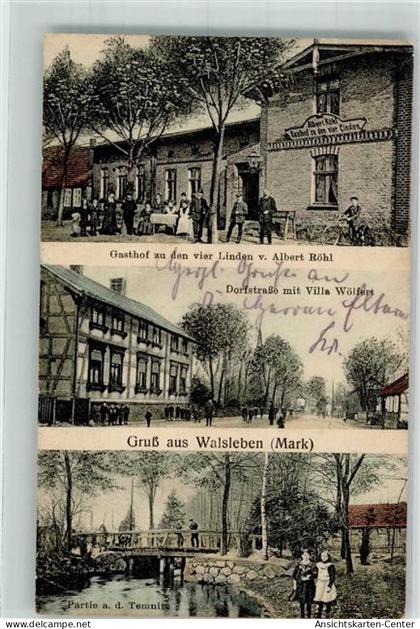 Albert Röhl
Gasthof zu den vier Linden
Gasthof zu den vier Linden v. Albert Röhl
Dorfstraße mit Villa Wölfert
Gruß aus Walsleben (Mark)
Partie a. d. Temnitz
Ansichtskarten-Center